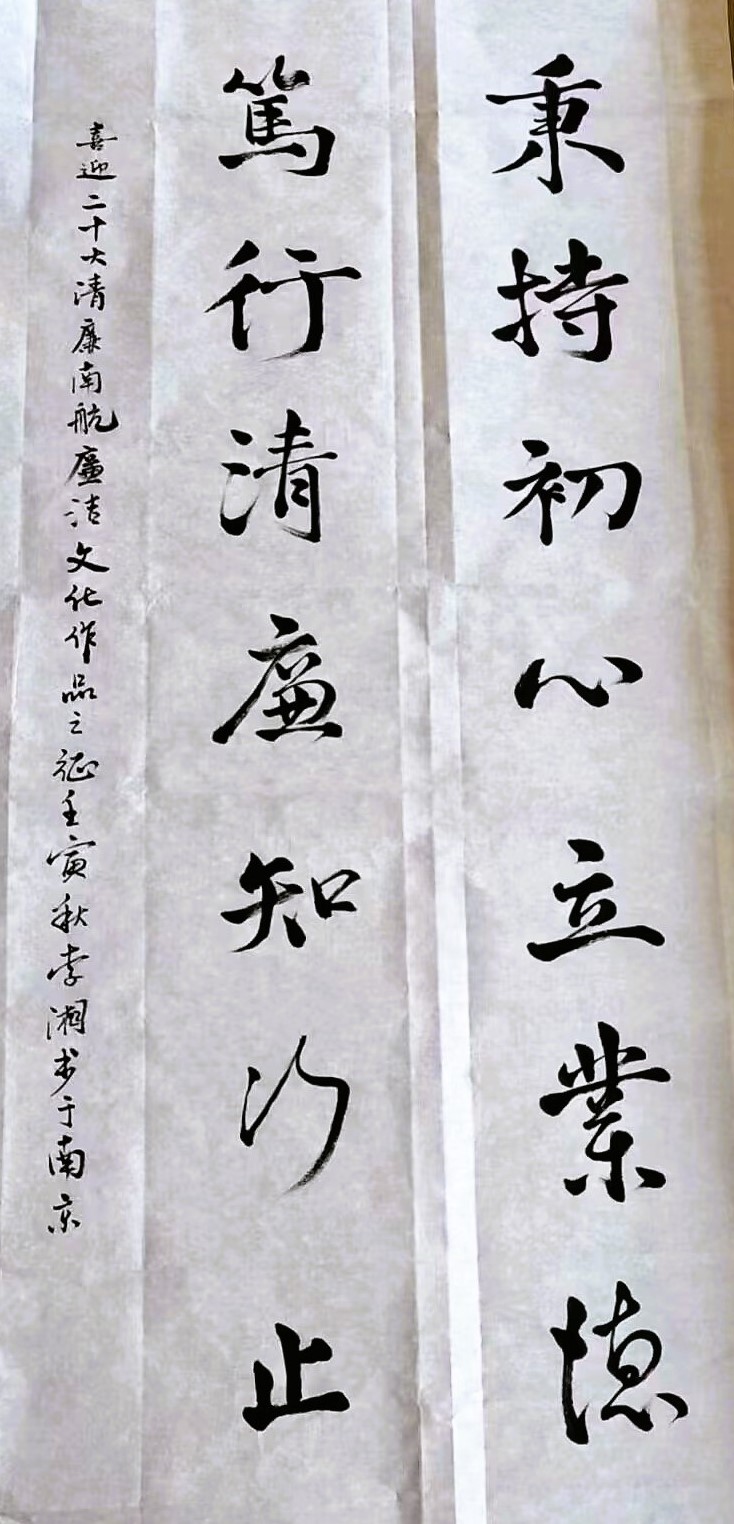 秉持初心立業德
篤行清廉知行止
喜迎二十大清廉南航廉洁文化作品之征壬寅秋李湘书于南京